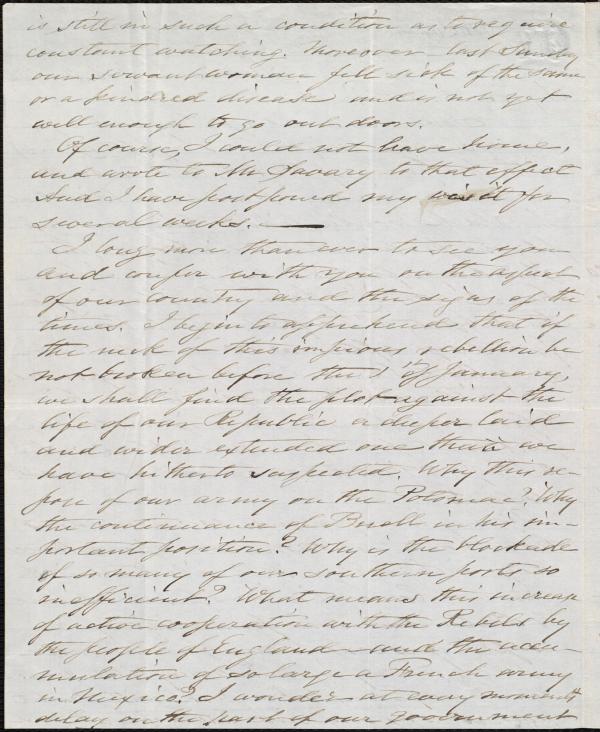 is still in such a condition as to require
constant watching. Moreover last Sunday
our servant woman fell sick of the same
or a kindred disease and is not yet
well enough to go out doors.
Of course, I could not leave home,
and wrote to Mr Savary to that effect
And I have postponed my visit for
several weeks. —
I long more than ever to see you
and confer with you on the aspect
of our country and the signs of the
times. I begin to apprehend that if
the neck of this impious rebellion be
not broken before the 1st of January,
we shall find the plot against the
life of our Republic a deeper laid
and wider extended one than we
have hitherto suspected. Why this re-
pose of our army on the Potomac? Why
the continuance of Buell in his im-
portant position? Why is the blockade
of so many of our southern ports so
inefficient? What means this increase
of active cooperation with the Rebels by
the people of England—and the accu-
mulation of so large a French army
in Mexico? I wonder at every moment's
delay on the part of our government